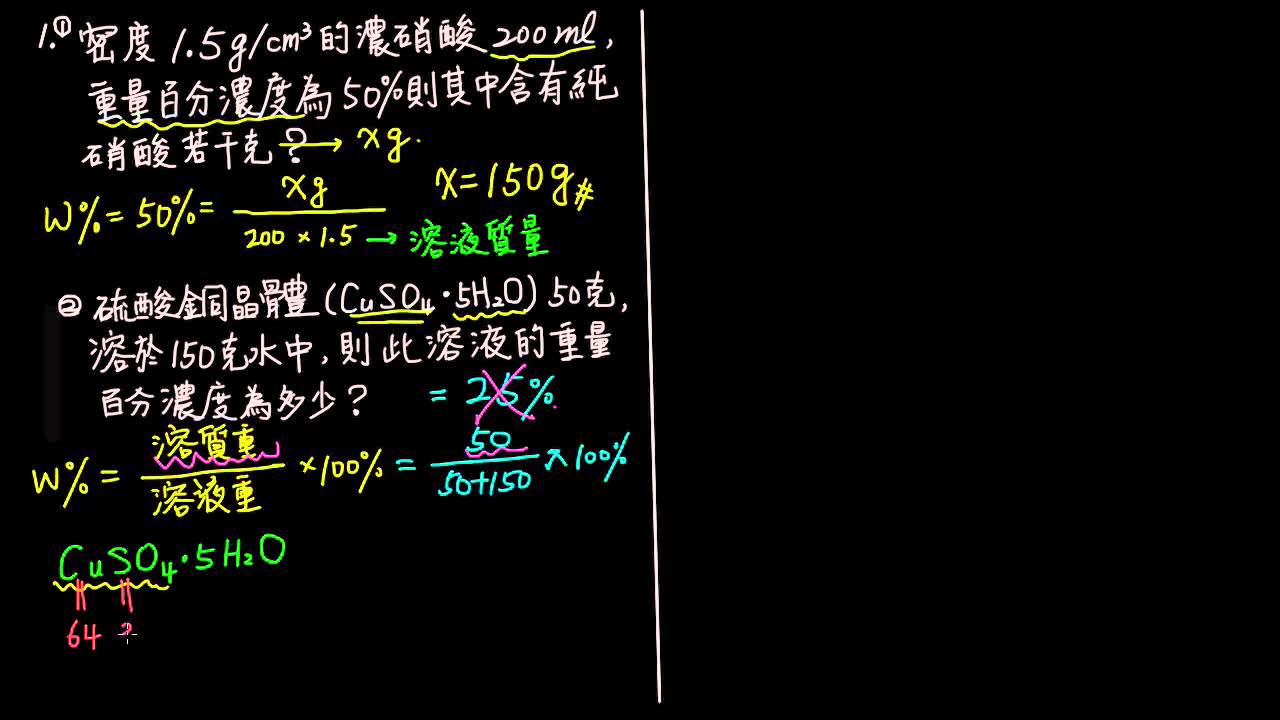 1.① 密度 1.5g/cm³的濃硝酸 200ml,
重量百分濃度為50%則其中含有純
硝酸若干克? → xg.
W%=50%= xg
200×1.5 → 溶液質量
x=150g#
② 硫酸銅晶體(CuSO₄·5H₂O) 50克,
溶於150克水中,則此溶液的重量
百分濃度為多少? = 25%
W% = 溶質重 ×100% = 50 ×100%
溶液重 50+150
CuSO₄·5H₂O
64